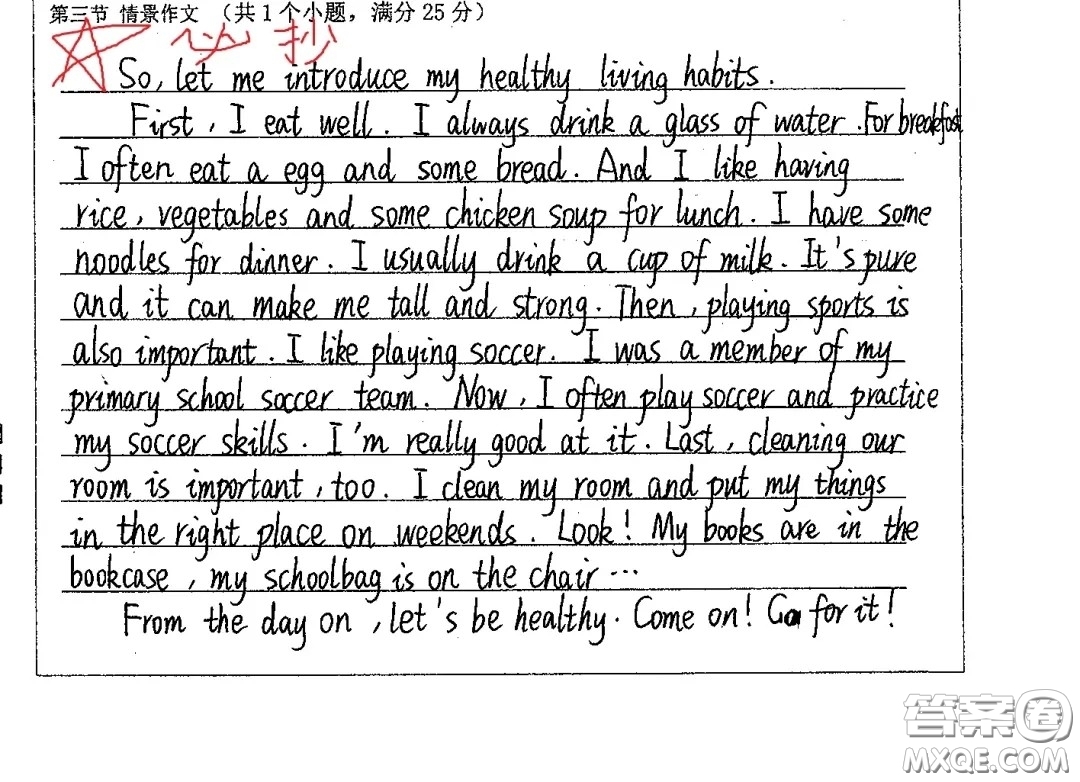 第三节 情景作文 （共1个小题，满分25分）
必抄
So, let me introduce my healthy living habits.
First, I eat well. I always drink a glass of water. For breakfast
I often eat a egg and some bread. And I like having
rice, vegetables and some chicken soup for lunch. I have some
noodles for dinner. I usually drink a cup of milk. It's pure
and it can make me tall and strong. Then, playing sports is
also important. I like playing soccer. I was a member of my
primary school soccer team. Now, I often play soccer and practice
my soccer skills. I'm really good at it. Last, cleaning our
room is important, too. I clean my room and put my things
in the right place on weekends. Look! My books are in the
bookcase, my schoolbag is on the chair ...
From the day on, let's be healthy. Come on! Go for it!
答案卷
MXQE.COM